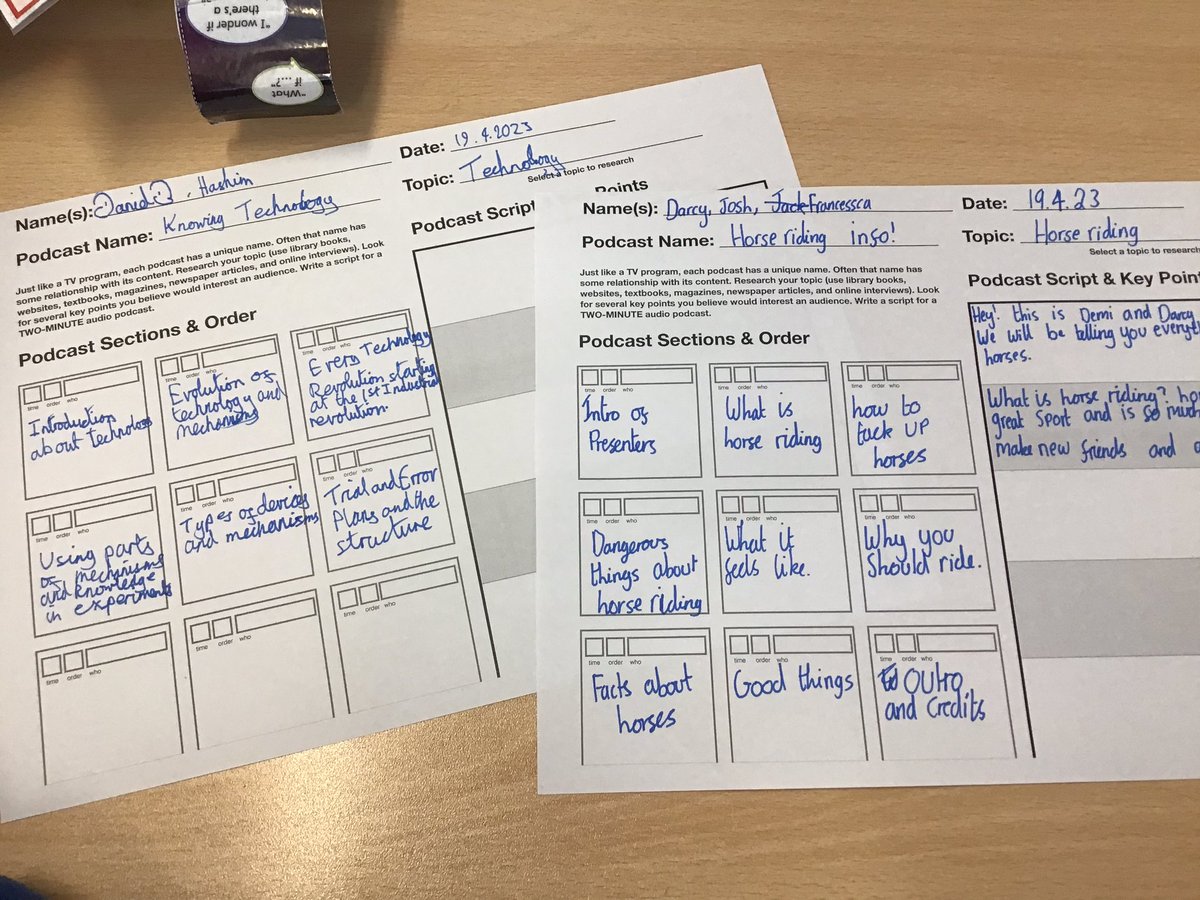 "I wonder if
there's a
"What
if ...?"
Name(s): Danid, Hashim
Date: 19.4.2023
Podcast Name: Knowing Technology
Topic: Technology
Select a topic to research
Just like a TV program, each podcast has a unique name. Often that name has
some relationship with its content. Research your topic (use library books,
websites, textbooks, magazines, newspaper articles, and online interviews). Look
for several key points you believe would interest an audience. Write a script for a
TWO-MINUTE audio podcast.
Podcast Sections & Order
Podcast Script
Points
time order who
Introduction
about technology
time order who
Evolution of
technology and
mechanisms
time order who
Every Technology
Revolution starting
at the 1st Industrial
revolution.
time order who
Using parts
of mechanisms
and knowledge
in experiments
time order who
Types of devices
and mechanisms
time order who
Trial and Error
plans and the
structure
time order who
time order who
time order who
Name(s): Darcy, Josh, Jack Francessca
Date: 19.4.23
Podcast Name: Horse riding info!
Topic: Horse riding
Select a topic to research
Just like a TV program, each podcast has a unique name. Often that name has
some relationship with its content. Research your topic (use library books,
websites, textbooks, magazines, newspaper articles, and online interviews). Look
for several key points you believe would interest an audience. Write a script for a
TWO-MINUTE audio podcast.
Podcast Sections & Order
time order who
Intro of
Presenters
time order who
What is
horse riding
time order who
how to
tack UP
horses
time order who
Dangerous
things about
horse riding
time order who
What it
feels like.
time order who
Why you
Should ride.
time order who
Facts about
horses
time order who
Good things
time order who
Outro
and Credits
Podcast Script & Key Point
Hey! this is Demi and Darcy
We will be telling you everyth
horses.
What is horse riding? ho
great Sport and is so much
make new friends and a